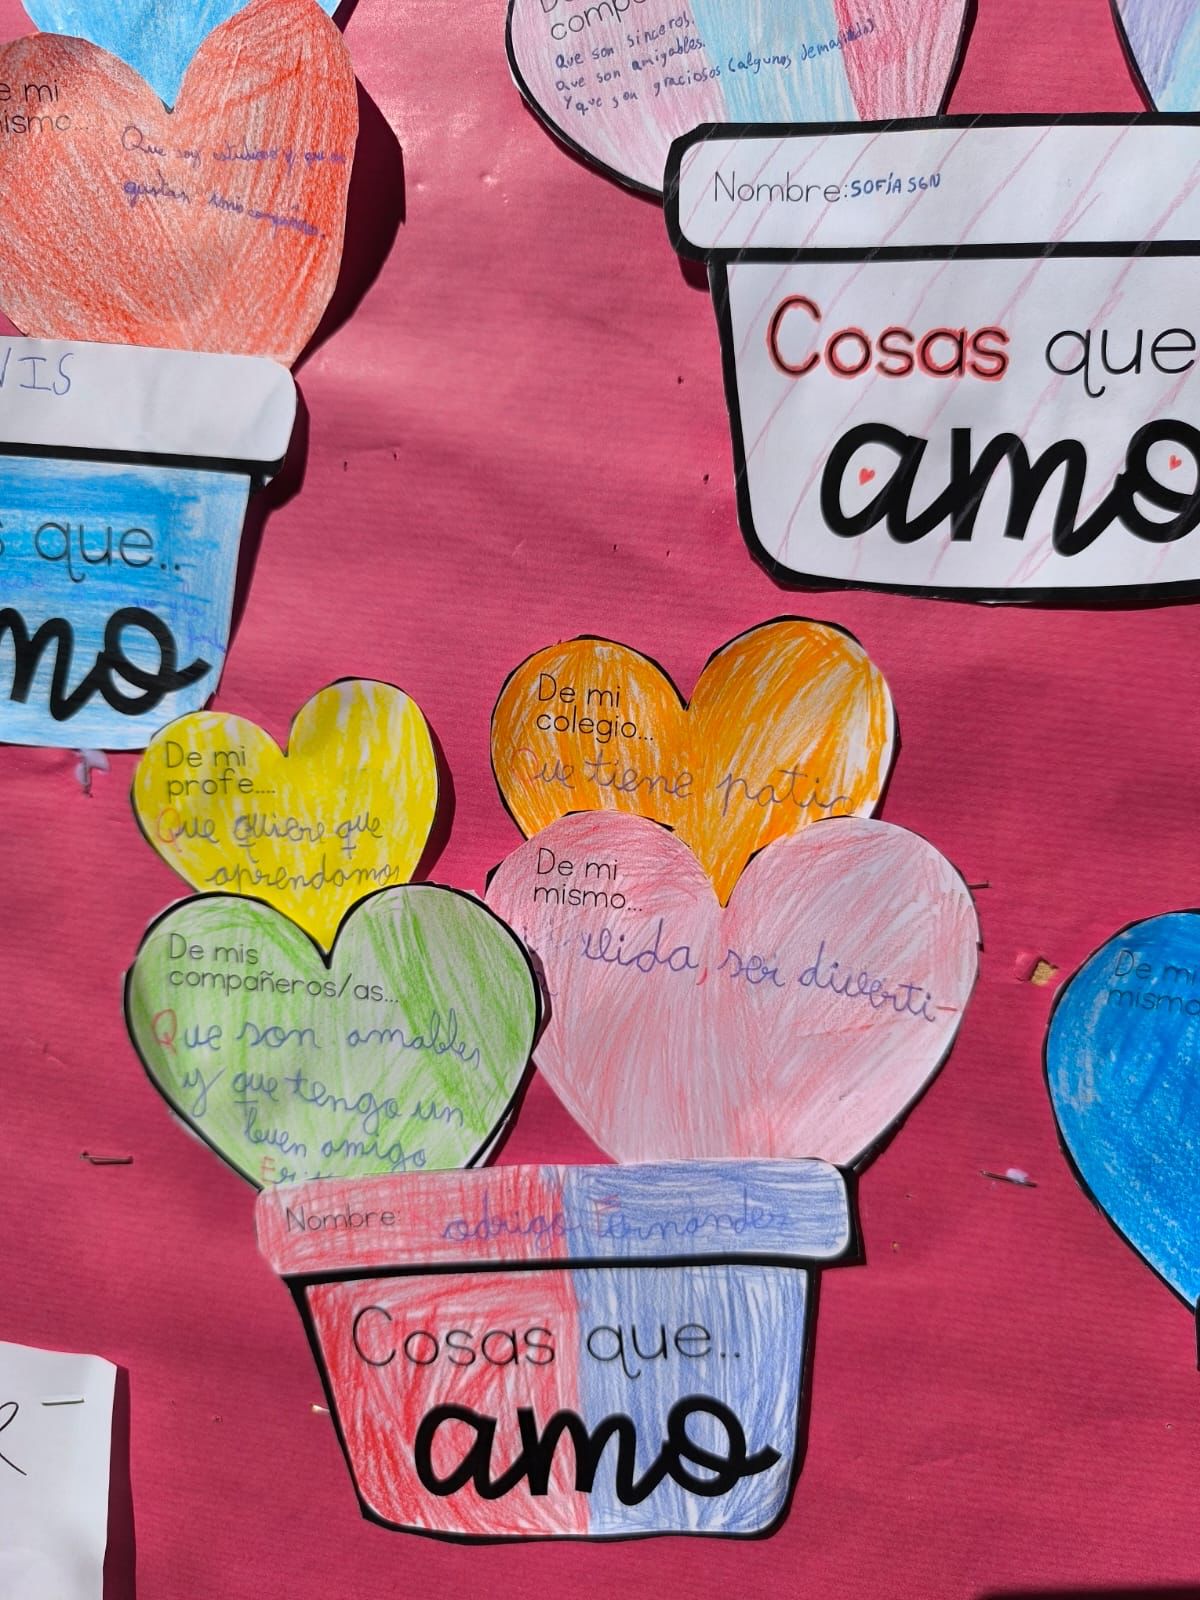 e mi
ismo...
Que soy estudioso y que me
gustan
comp
que son sinceros.
que son amigables.
Y que son graciosos (algunos demasiado)
Nombre: SOFÍA SGN
Cosas que
amo
VIS
s que..
mo
De mi
profe....
Que quiere que
aprendamos
De mi
colegio...
Que tiene patio
De mi
mismo...
vida, ser diverti-
De mis
compañeros/as...
Que son amables
y que tengo un
buen amigo
De mi
mismo
Nombre: odrigo Fernandez
Cosas que..
amo